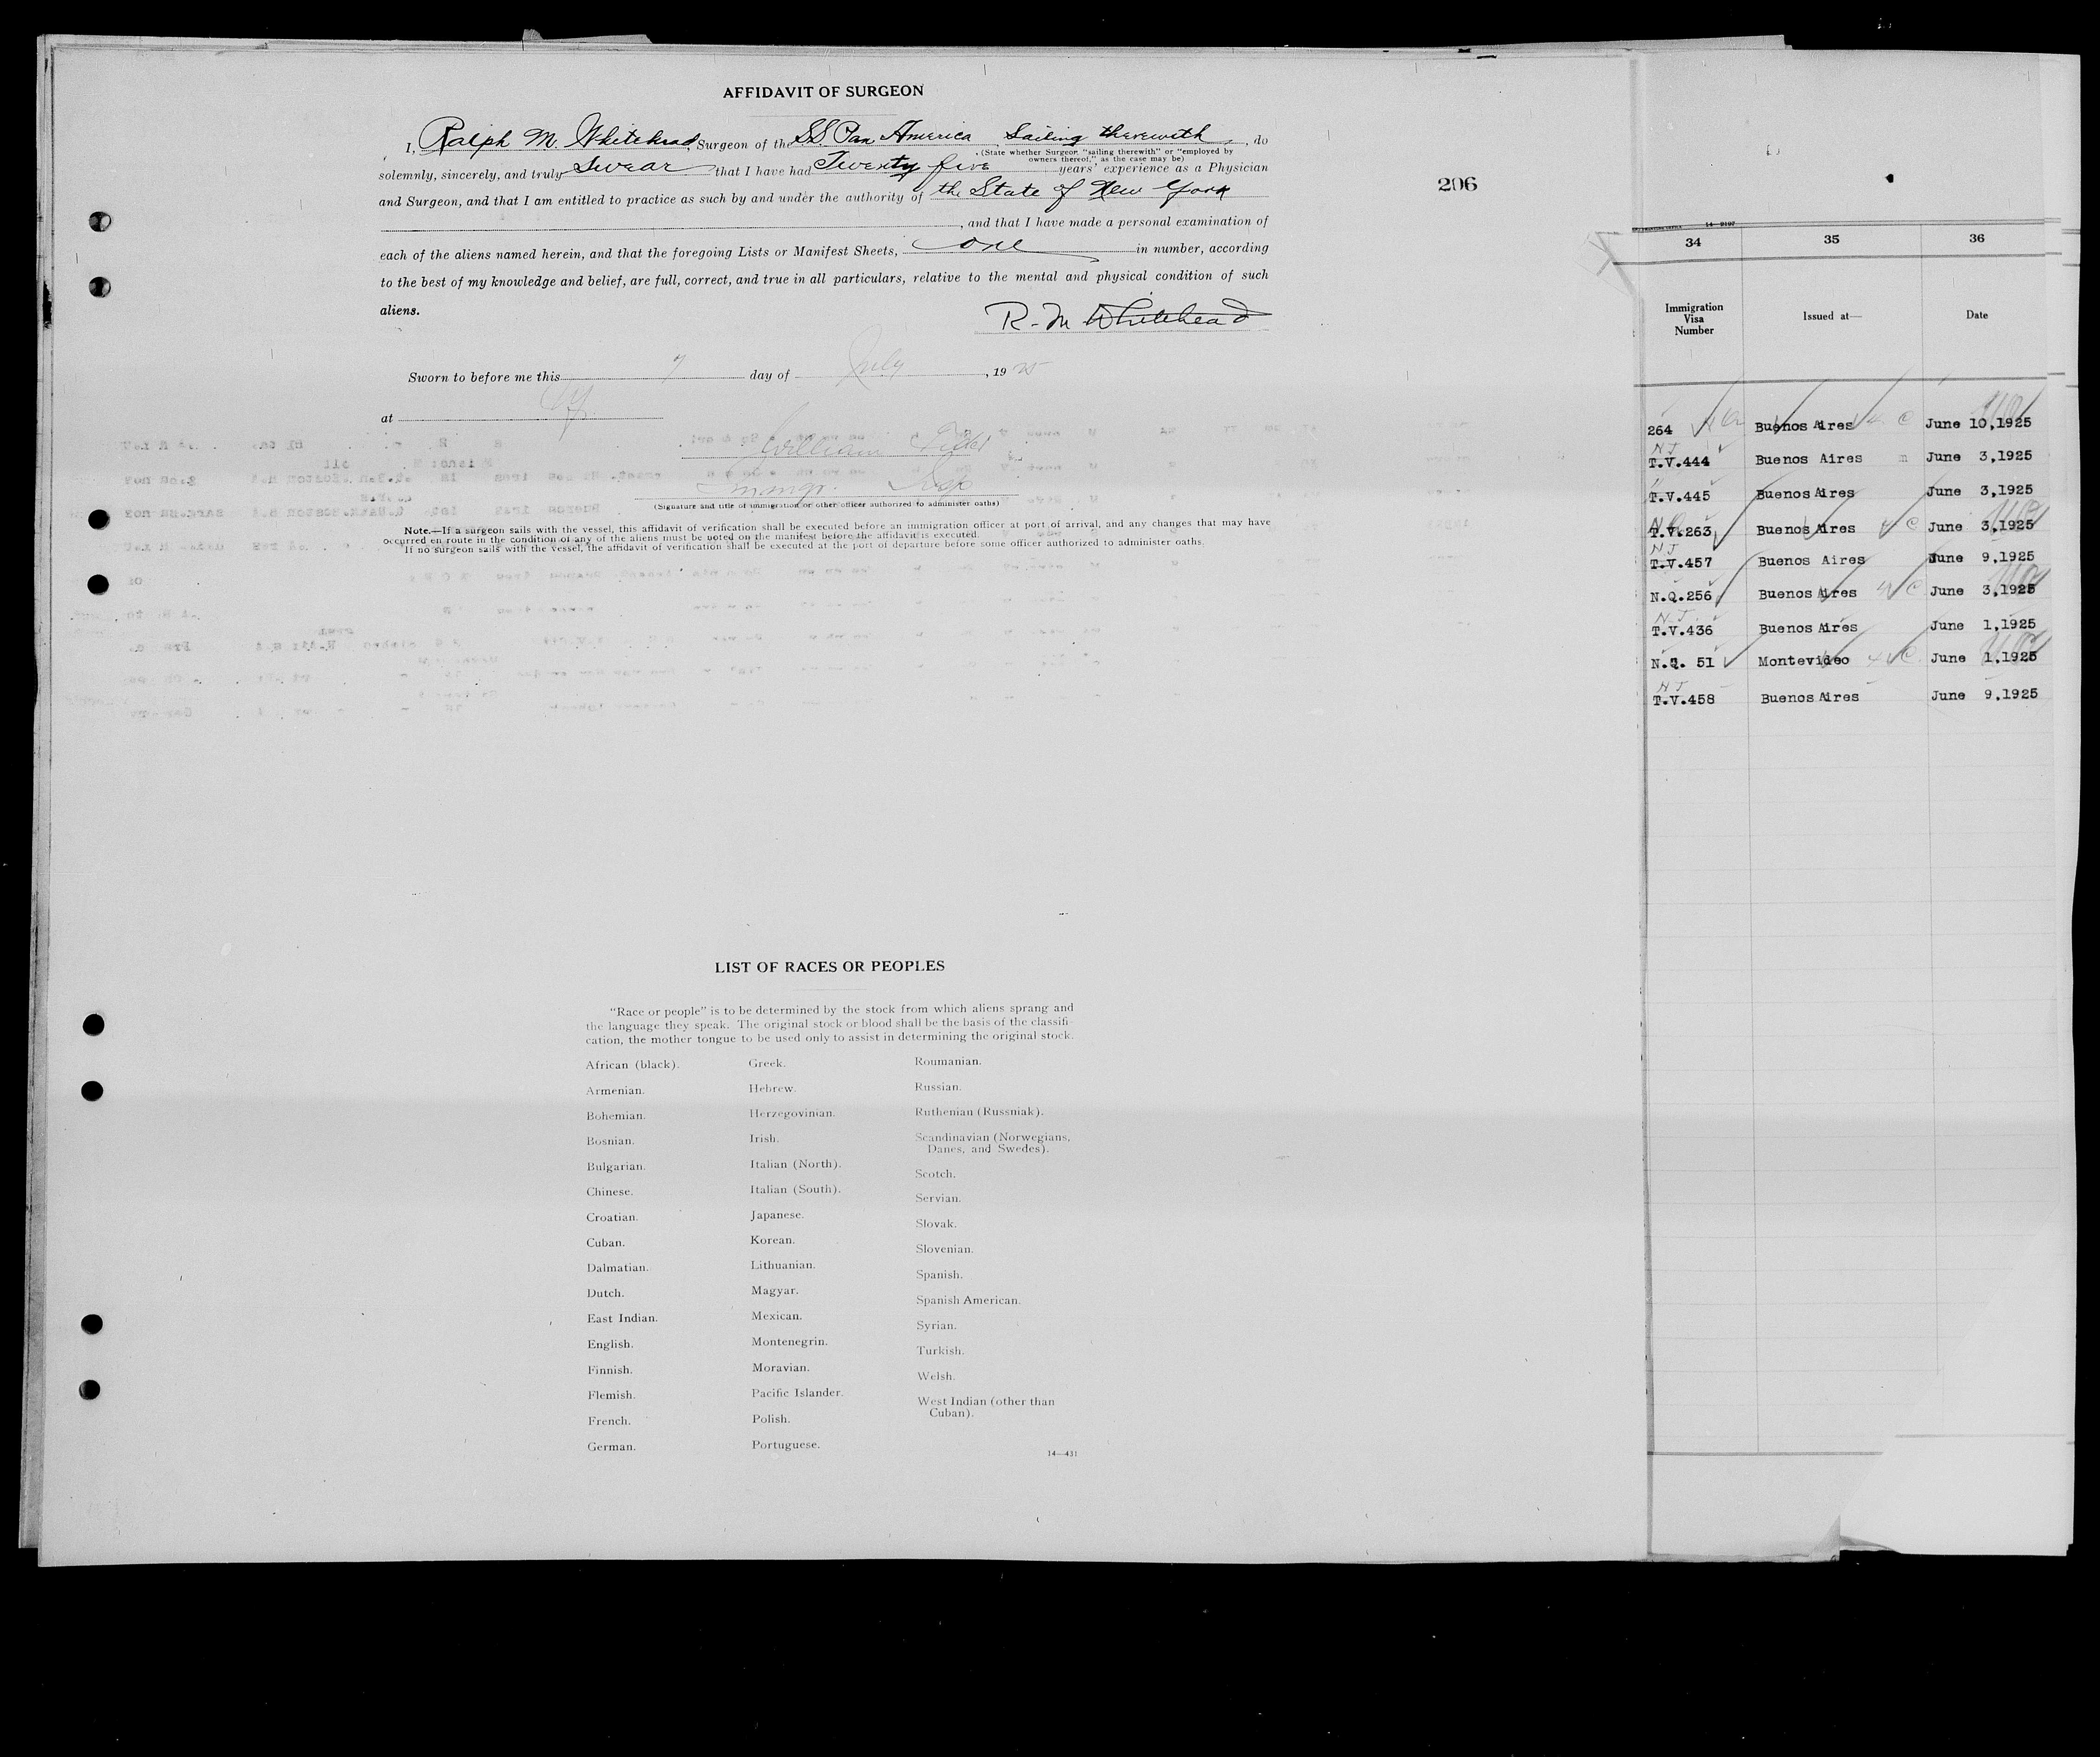 AFFIDAVIT OF SURGEON
I, Ralph M. Whitehead, Surgeon of the SS. Pan America Sailing therewith, do
(State whether Surgeon "sailing therewith" or "employed by
owners thereof," as the case may be)
solemnly, sincerely, and truly Swear that I have had Twenty five years' experience as a Physician
and Surgeon, and that I am entitled to practice as such by and under the authority of the State of New York
, and that I have made a personal examination of
each of the aliens named herein, and that the foregoing Lists or Manifest Sheets, one in number, according
to the best of my knowledge and belief, are full, correct, and true in all particulars, relative to the mental and physical condition of such
aliens.
R. M Whitehead
Sworn to before me this 7 day of July, 1925
at NY
William
Immgr. Insp
(Signature and title of immigration or other officer authorized to administer oaths)
Note.—If a surgeon sails with the vessel, this affidavit of verification shall be executed before an immigration officer at port of arrival, and any changes that may have
occurred en route in the condition of any of the aliens must be noted on the manifest before the affidavit is executed.
If no surgeon sails with the vessel, the affidavit of verification shall be executed at the port of departure before some officer authorized to administer oaths.
206
LIST OF RACES OR PEOPLES
"Race or people" is to be determined by the stock from which aliens sprang and
the language they speak. The original stock or blood shall be the basis of the classifi-
cation, the mother tongue to be used only to assist in determining the original stock.
African (black).
Armenian.
Bohemian.
Bosnian.
Bulgarian.
Chinese.
Croatian.
Cuban.
Dalmatian.
Dutch.
East Indian.
English.
Finnish.
Flemish.
French.
German.
Greek.
Hebrew.
Herzegovinian.
Irish.
Italian (North).
Italian (South).
Japanese.
Korean.
Lithuanian.
Magyar.
Mexican.
Montenegrin.
Moravian.
Pacific Islander.
Polish.
Portuguese.
Roumanian.
Russian.
Ruthenian (Russniak).
Scandinavian (Norwegians,
Danes, and Swedes).
Scotch.
Servian.
Slovak.
Slovenian.
Spanish.
Spanish American.
Syrian.
Turkish.
Welsh.
West Indian (other than
Cuban).
14—431
34 35 36
Immigration
Visa
Number
Issued at—
Date
264 Buenos Aires June 10,1925
NJ
T.V.444 Buenos Aires June 3,1925
T.V.445 Buenos Aires June 3,1925
T.V.263 Buenos Aires June 3,1925
NJ
T.V.457 Buenos Aires June 9,1925
N.Q.256 Buenos Aires June 3,1925
NJ
T.V.436 Buenos Aires June 1,1925
N.Q. 51 Montevideo June 1,1925
NJ
T.V.458 Buenos Aires June 9,1925